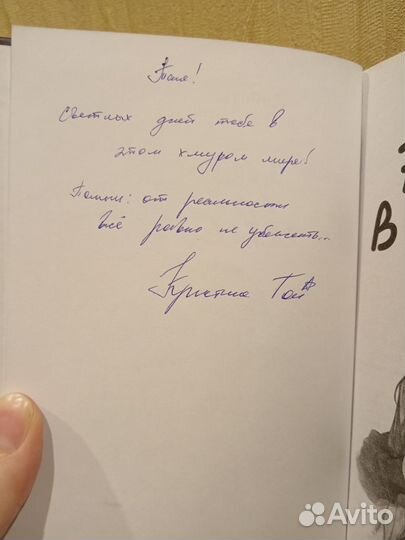 Таня!
Светлых дней тебе в
этом хмуром мире!
Помни: от реальности
всё равно не убежать...
Кристина
В
Avito